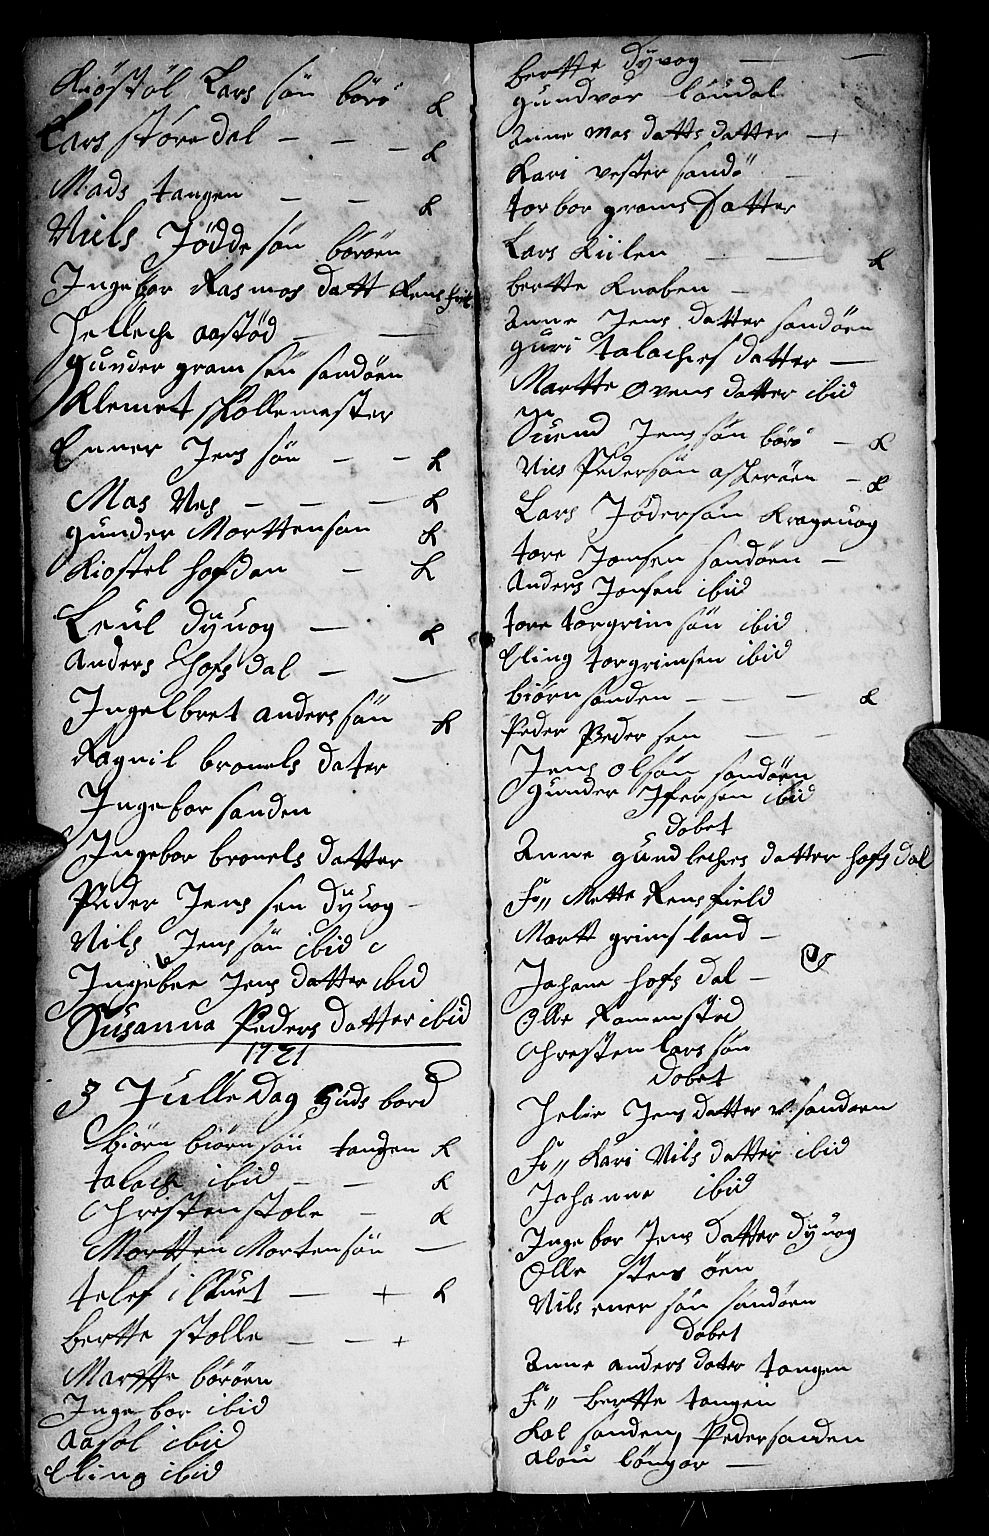 Kiöstöl Lars sön börö k
Lars störedal - - - k
Mads tangen - - k
Niels Jödde sön böröen
Ingebor Rasmos datt
Hellech aastöd - -
gunder gramsen sandöen
Klemet skollemester
Enner Jens sön - - k
Mas Nes - - - k
gunder Morttensøn k
Kiostel hofdan - k
Leul dÿuog - k
Anders hofsdal - -
Ingelbret anders sön k
Ragnil bronels dater
Ingebor sanden
Ingebor bronels datter
Peder Jens sen dÿuog -
Nils Jens sön ibid
Ingebor Jens datter ibid
Susanna Peders datter ibid
1721
3 Julle Dag Guds bord
biörn biörn sön tangen k
talach ibid - - k
Christen stole - k
Mortten Mortensön -
telef i - + k
bertte stolle - - +
Martte böröen
Ingebor ibid
Aasol ibid
Eling ibid
bertte dyvog - -
gundvor löudal
Anne mas datts datter - +
Kari vester sandö -
torbor grams datter
Lars Kiilen - - k
bertte Knaben -
Anne Jens datter sandöen
guri talaches datter -
Martte Ovens datter ibid
Suend Jens sön börö - k
Nies Pedersön askeröen - k
Lars Jödersön Krageuog
tore Jonsen sandöen -
Anders Jonsen ibid
tore torgrim sön ibid
Eling torgrimsen ibid
biörn sanden - - k
Peder Peder sen - -
Jens olsön sandöen
gunder Ifersen ibid
döbet
Anne gundleches datter hofs dal
F:" Mette Rensfield
Martt grimsland -
Johane hofs dal -
Olle Ramensted
Christen Lars sön
döbet
Helie Jens datter v. sandöen
F:" Kari Nils datter ibid
Johanne ibid
Ingebor Jens datter dyuog
Olle stens öen
Nils ener sön sandöen
döbet
Anne anders dater tangen
F:" bertte tangen
Kol sanden, Peder sanden
alou löngør -